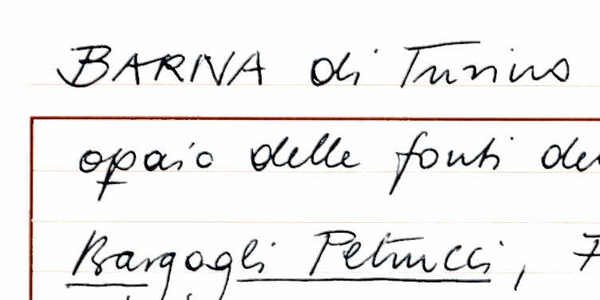 BARNA di Turino
opaio delle fonti de
Bargagli Petrucci, F